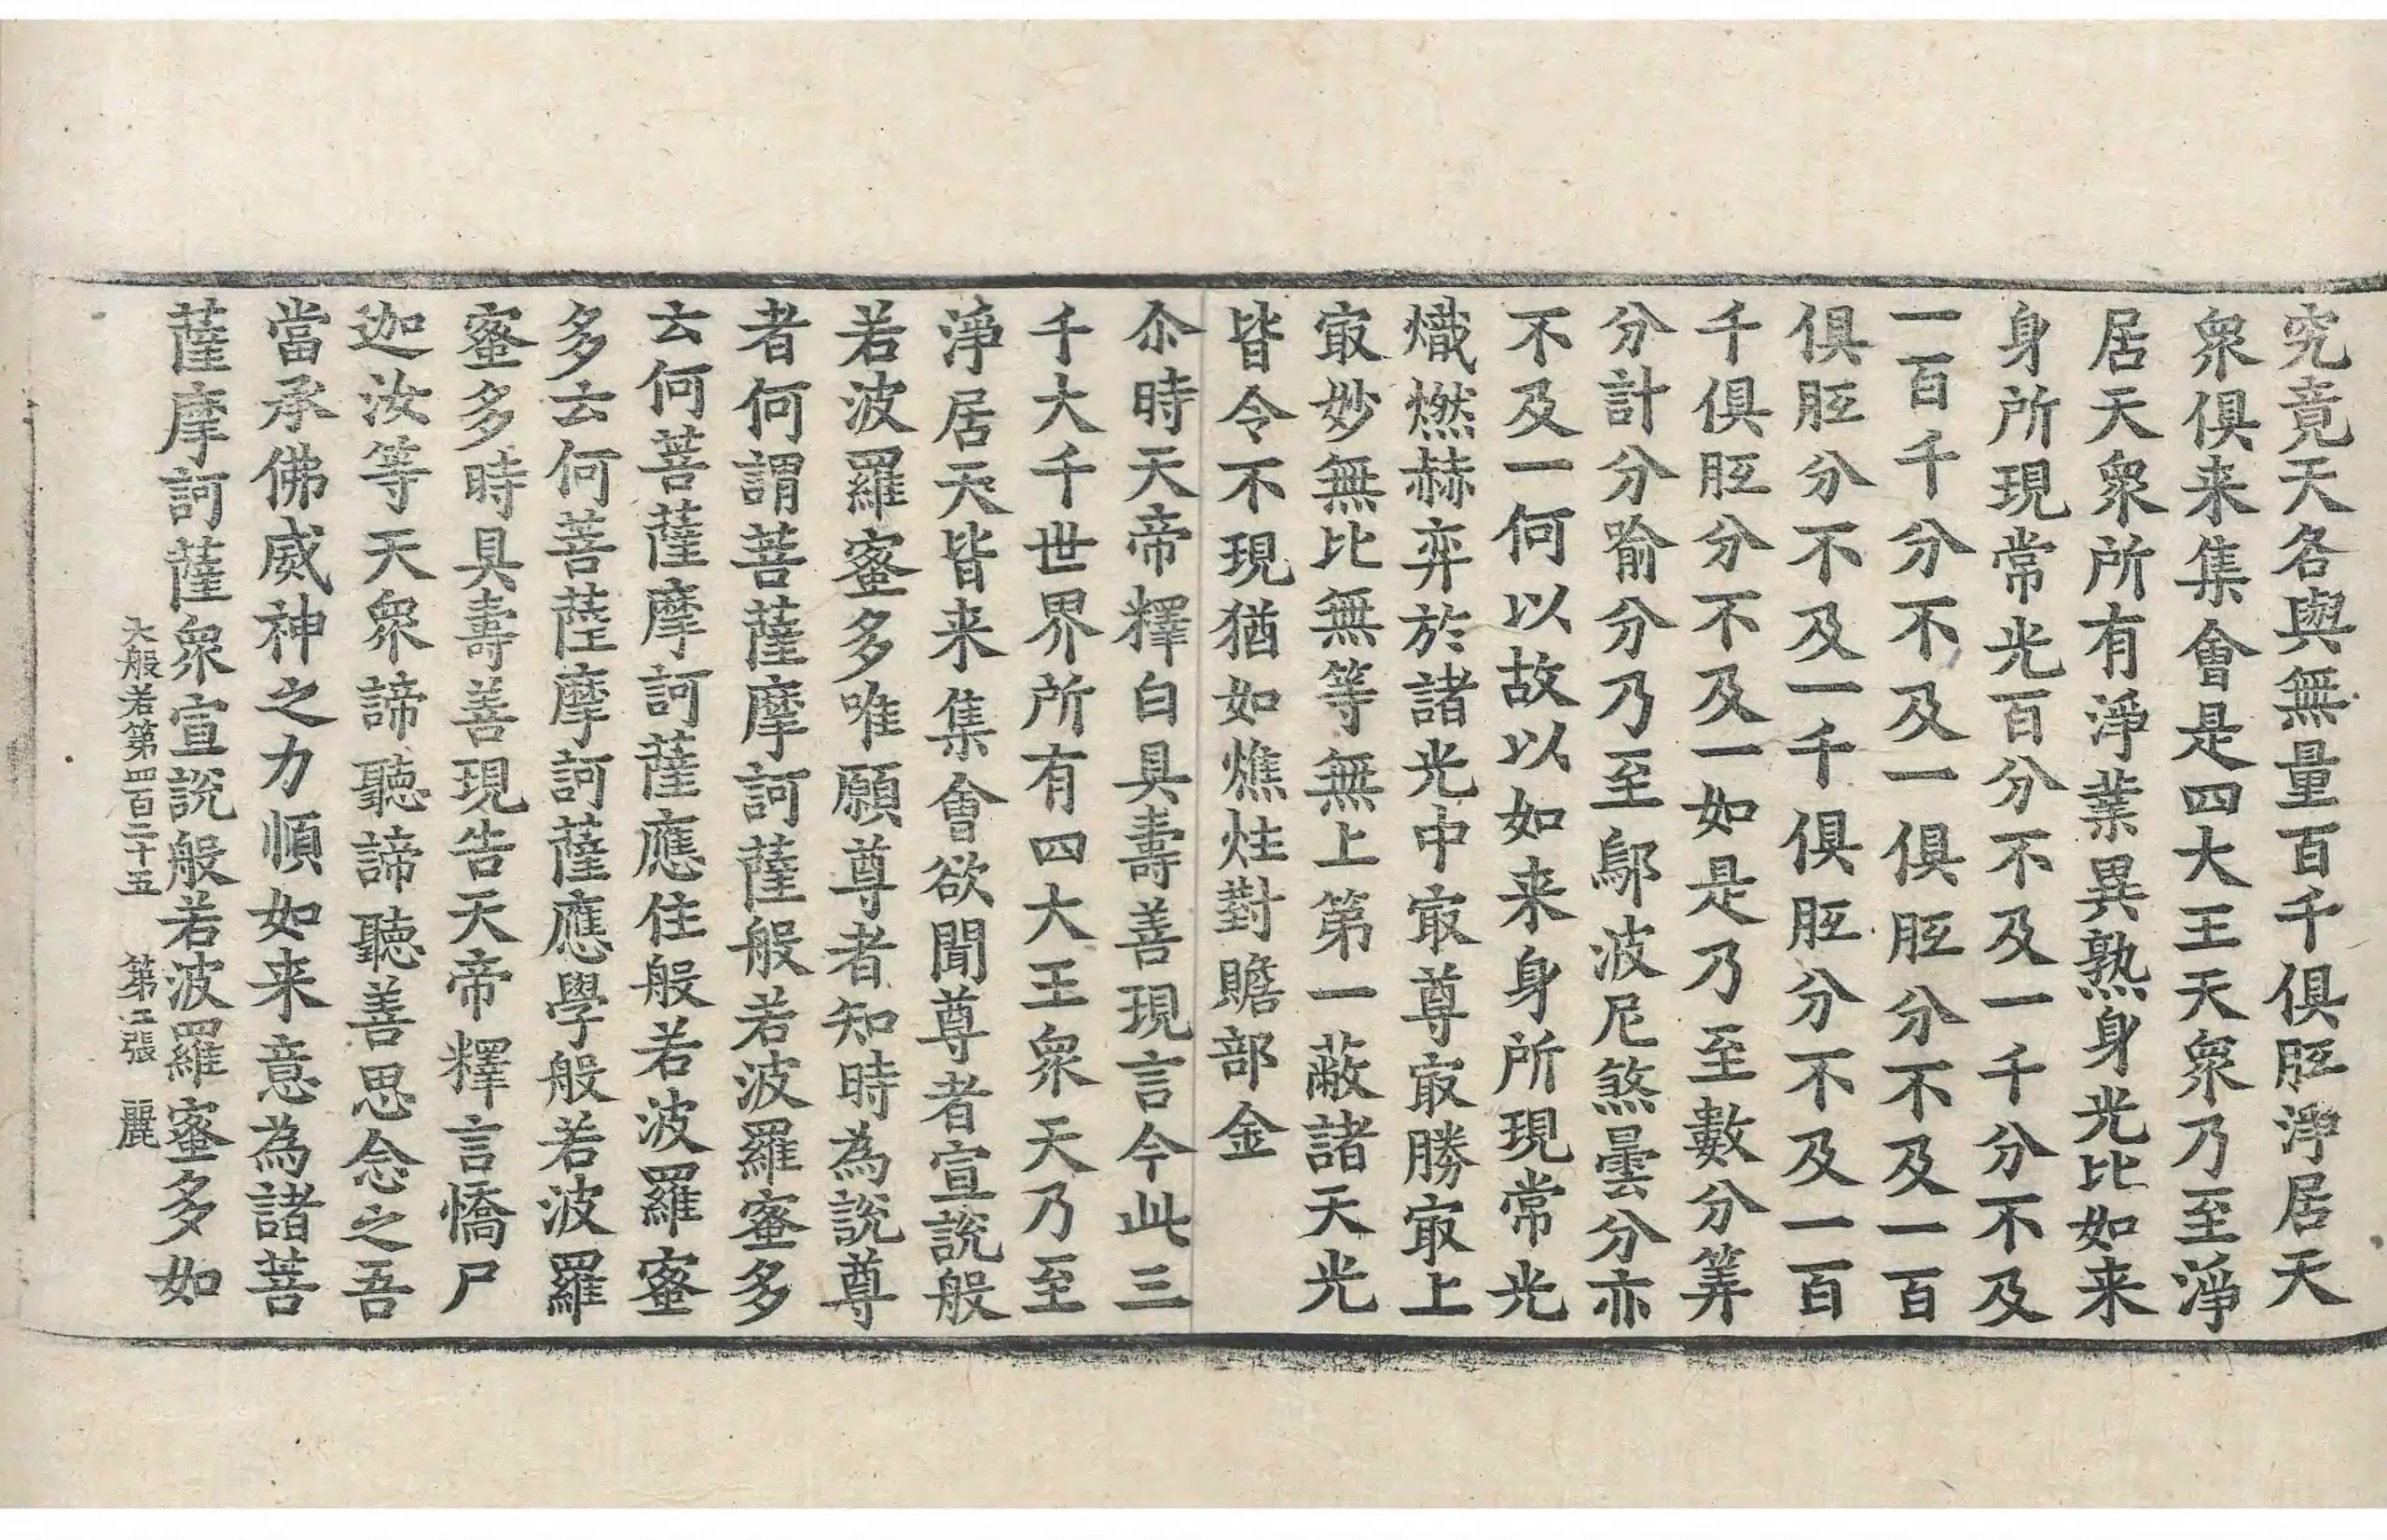 究竟天各與無量百千俱胝淨居天
衆俱来集會是四大王天衆乃至淨
居天衆所有淨業異熟身光比如来
身所現常光百分不及一千分不及
一百千分不及一俱胝分不及一百
俱胝分不及一千俱胝分不及一百
千俱胝分不及一如是乃至數分筭
分計分喻分乃至鄔波尼煞曇分亦
不及一何以故以如来身所現常光
熾燃赫弈於諸光中㝡尊㝡勝㝡上
㝡妙無比無等無上第一蔽諸天光
皆令不現猶如燋炷對贍部金
尒時天帝釋白具壽善現言今此三
千大千世界所有四大王衆天乃至
淨居天皆来集會欲聞尊者宣說般
若波羅蜜多唯願尊者知時為說尊
者何謂菩薩摩訶薩般若波羅蜜多
云何菩薩摩訶薩應住般若波羅蜜
多云何菩薩摩訶薩應學般若波羅
蜜多時具壽善現告天帝釋言憍尸
迦汝等天衆諦聽諦聽善思念之吾
當承佛威神之力順如来意為諸菩
薩摩訶薩衆宣說般若波羅蜜多如
大般若第四百二十五 第二張 麗